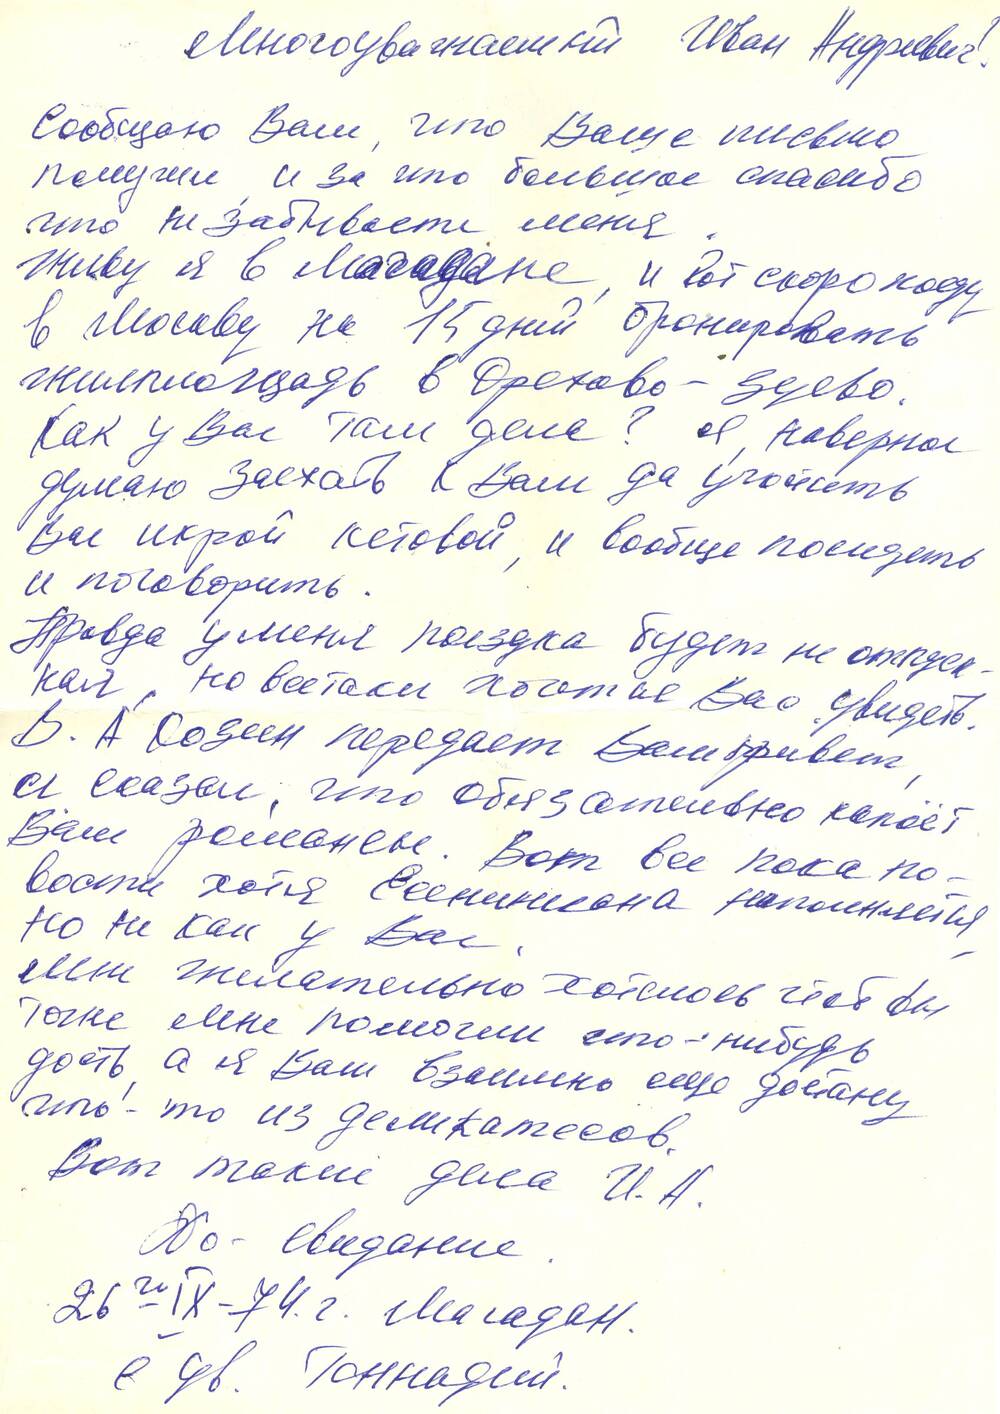 Многоуважаемый Иван Андреевич!
Сообщаю Вам, что Ваше письмо
получил, и за что большое спасибо
что не забываете меня.
Живу я в Магадане, и вот скоро поеду
в Москву на 15 дней бронировать
жилплощадь в Орехово-Зуево.
Как у Вас там дела? Я, наверное
думаю заехать к Вам да угостить
Вас икрой кетовой, и вообще посидеть
и поговорить.
Правда у меня поездка будет не отпуск-
ная, но всетаки хочется Вас увидеть.
В. А Козин передает Вам привет,
и сказал, что обязательно напоёт
Вам романсы. Вот все пока но-
вости хотя Есениниана пополняется,
но не как у Вас.
Мне желательно хотелось чтоб Вы
тоже мне помогли что-нибудь
дость, а я Вам взаимно еще достану
что-то из деликатесов.
Вот такие дела И. А.
До-свидание.
26го-IX-74.г. Магадан.
с ув. Геннадий.